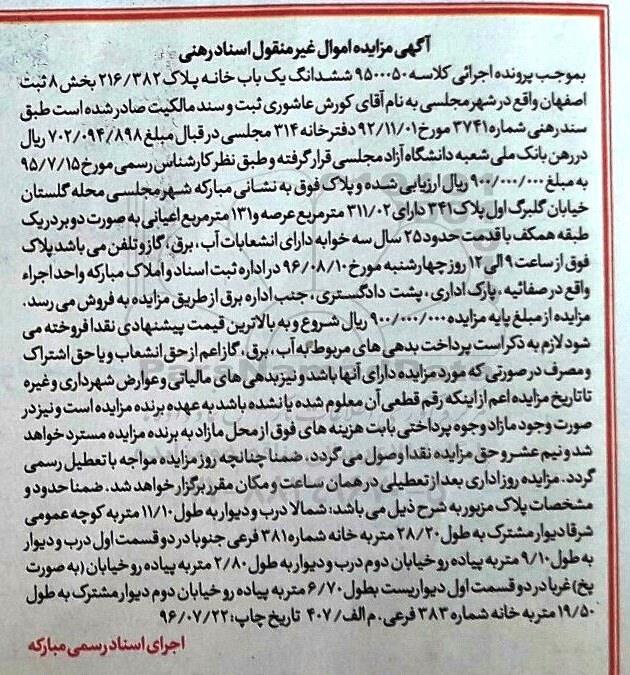 آگهی مزایده اموال غیر منقول اسناد رهنی
بموجب پرونده اجرائی کلاسه ۹۵۰۰۰۵۰ ششدانگ یک باب خانه پلاک ۲۱۶/۳۸۲ بخش ۸ ثبت
اصفهان واقع در شهر مجلسی به نام آقای کورش عاشوری ثبت و سند مالکیت صادر شده است طبق
سند رهنی شماره ۳۷۴۱ مورخ ۹۲/۱۱/۰۱ دفترخانه ۳۱۴ مجلسی در قبال مبلغ ۷۰۲/۰۹۴/۸۹۸ ریال
در رهن بانک ملی شعبه دانشگاه آزاد مجلسی قرار گرفته و طبق نظر کارشناس رسمی مورخ ۹۵/۷/۱۵
به مبلغ ۹۰۰/۰۰۰/۰۰۰ ریال ارزیابی شده و پلاک فوق به نشانی مبارکه شهر مجلسی محله گلستان
خیابان گلبرگ اول پلاک ۳۴۱ دارای ۳۱۱/۰۲ مترمربع عرصه و ۱۳۱ مترمربع اعیانی به صورت دو بر در یک
طبقه همکف با قدمت حدود ۲۵ سال سه خوابه دارای انشعابات آب ، برق ، گاز و تلفن می باشد پلاک
فوق از ساعت ۹ الی ۱۲ روز چهارشنبه مورخ ۹۶/۰۸/۱۰ در اداره ثبت اسناد و املاک مبارکه واحد اجراء
واقع در صفائیه ، پارک اداری ، پشت دادگستری ، جنب اداره برق از طریق مزایده به فروش می رسد .
مزایده از مبلغ پایه مزایده ۹۰۰/۰۰۰/۰۰۰ ریال شروع و به بالاترین قیمت پیشنهادی نقدا فروخته می
شود لازم به ذکر است پرداخت بدهی های مربوط به آب ، برق ، گاز اعم از حق انشعاب و یا حق اشتراک
و مصرف در صورتی که مورد مزایده دارای آنها باشد و نیز بدهی های مالیاتی و عوارض شهرداری و غیره
تا تاریخ مزایده اعم از اینکه رقم قطعی آن معلوم شده یا نشده باشد به عهده برنده مزایده است و نیز در
صورت وجود مازاد وجوه پرداختی بابت هزینه های فوق از محل مازاد به برنده مزایده مسترد خواهد
شد و نیم عشر و حق مزایده نقدا وصول می گردد . ضمنا چنانچه روز مزایده مواجه با تعطیل رسمی
گردد . مزایده روز اداری بعد از تعطیلی در همان ساعت و مکان مقرر برگزار خواهد شد . ضمنا حدود و
مشخصات پلاک مزبور به شرح ذیل می باشد : شمالا درب و دیوار به طول ۱۱/۱۰ متر به کوچه عمومی
شرقا دیوار مشترک به طول ۲۸/۲۰ متر به خانه شماره ۳۸۱ فرعی جنوبا در دو قسمت اول درب و دیوار
به طول ۹/۱۰ متر به پیاده رو خیابان دوم درب و دیوار به طول ۲/۸۰ متر به پیاده رو خیابان (به صورت
پخ) غربا در دو قسمت اول دیواریست بطول ۶/۷۰ متر به پیاده رو خیابان دوم دیوار مشترک به طول
۱۹/۵۰ متر به خانه شماره ۳۸۳ فرعی . م الف/ ۴۰۷ تاریخ چاپ : ۹۶/۰۷/۲۲
اجرای اسناد رسمی مبارکه